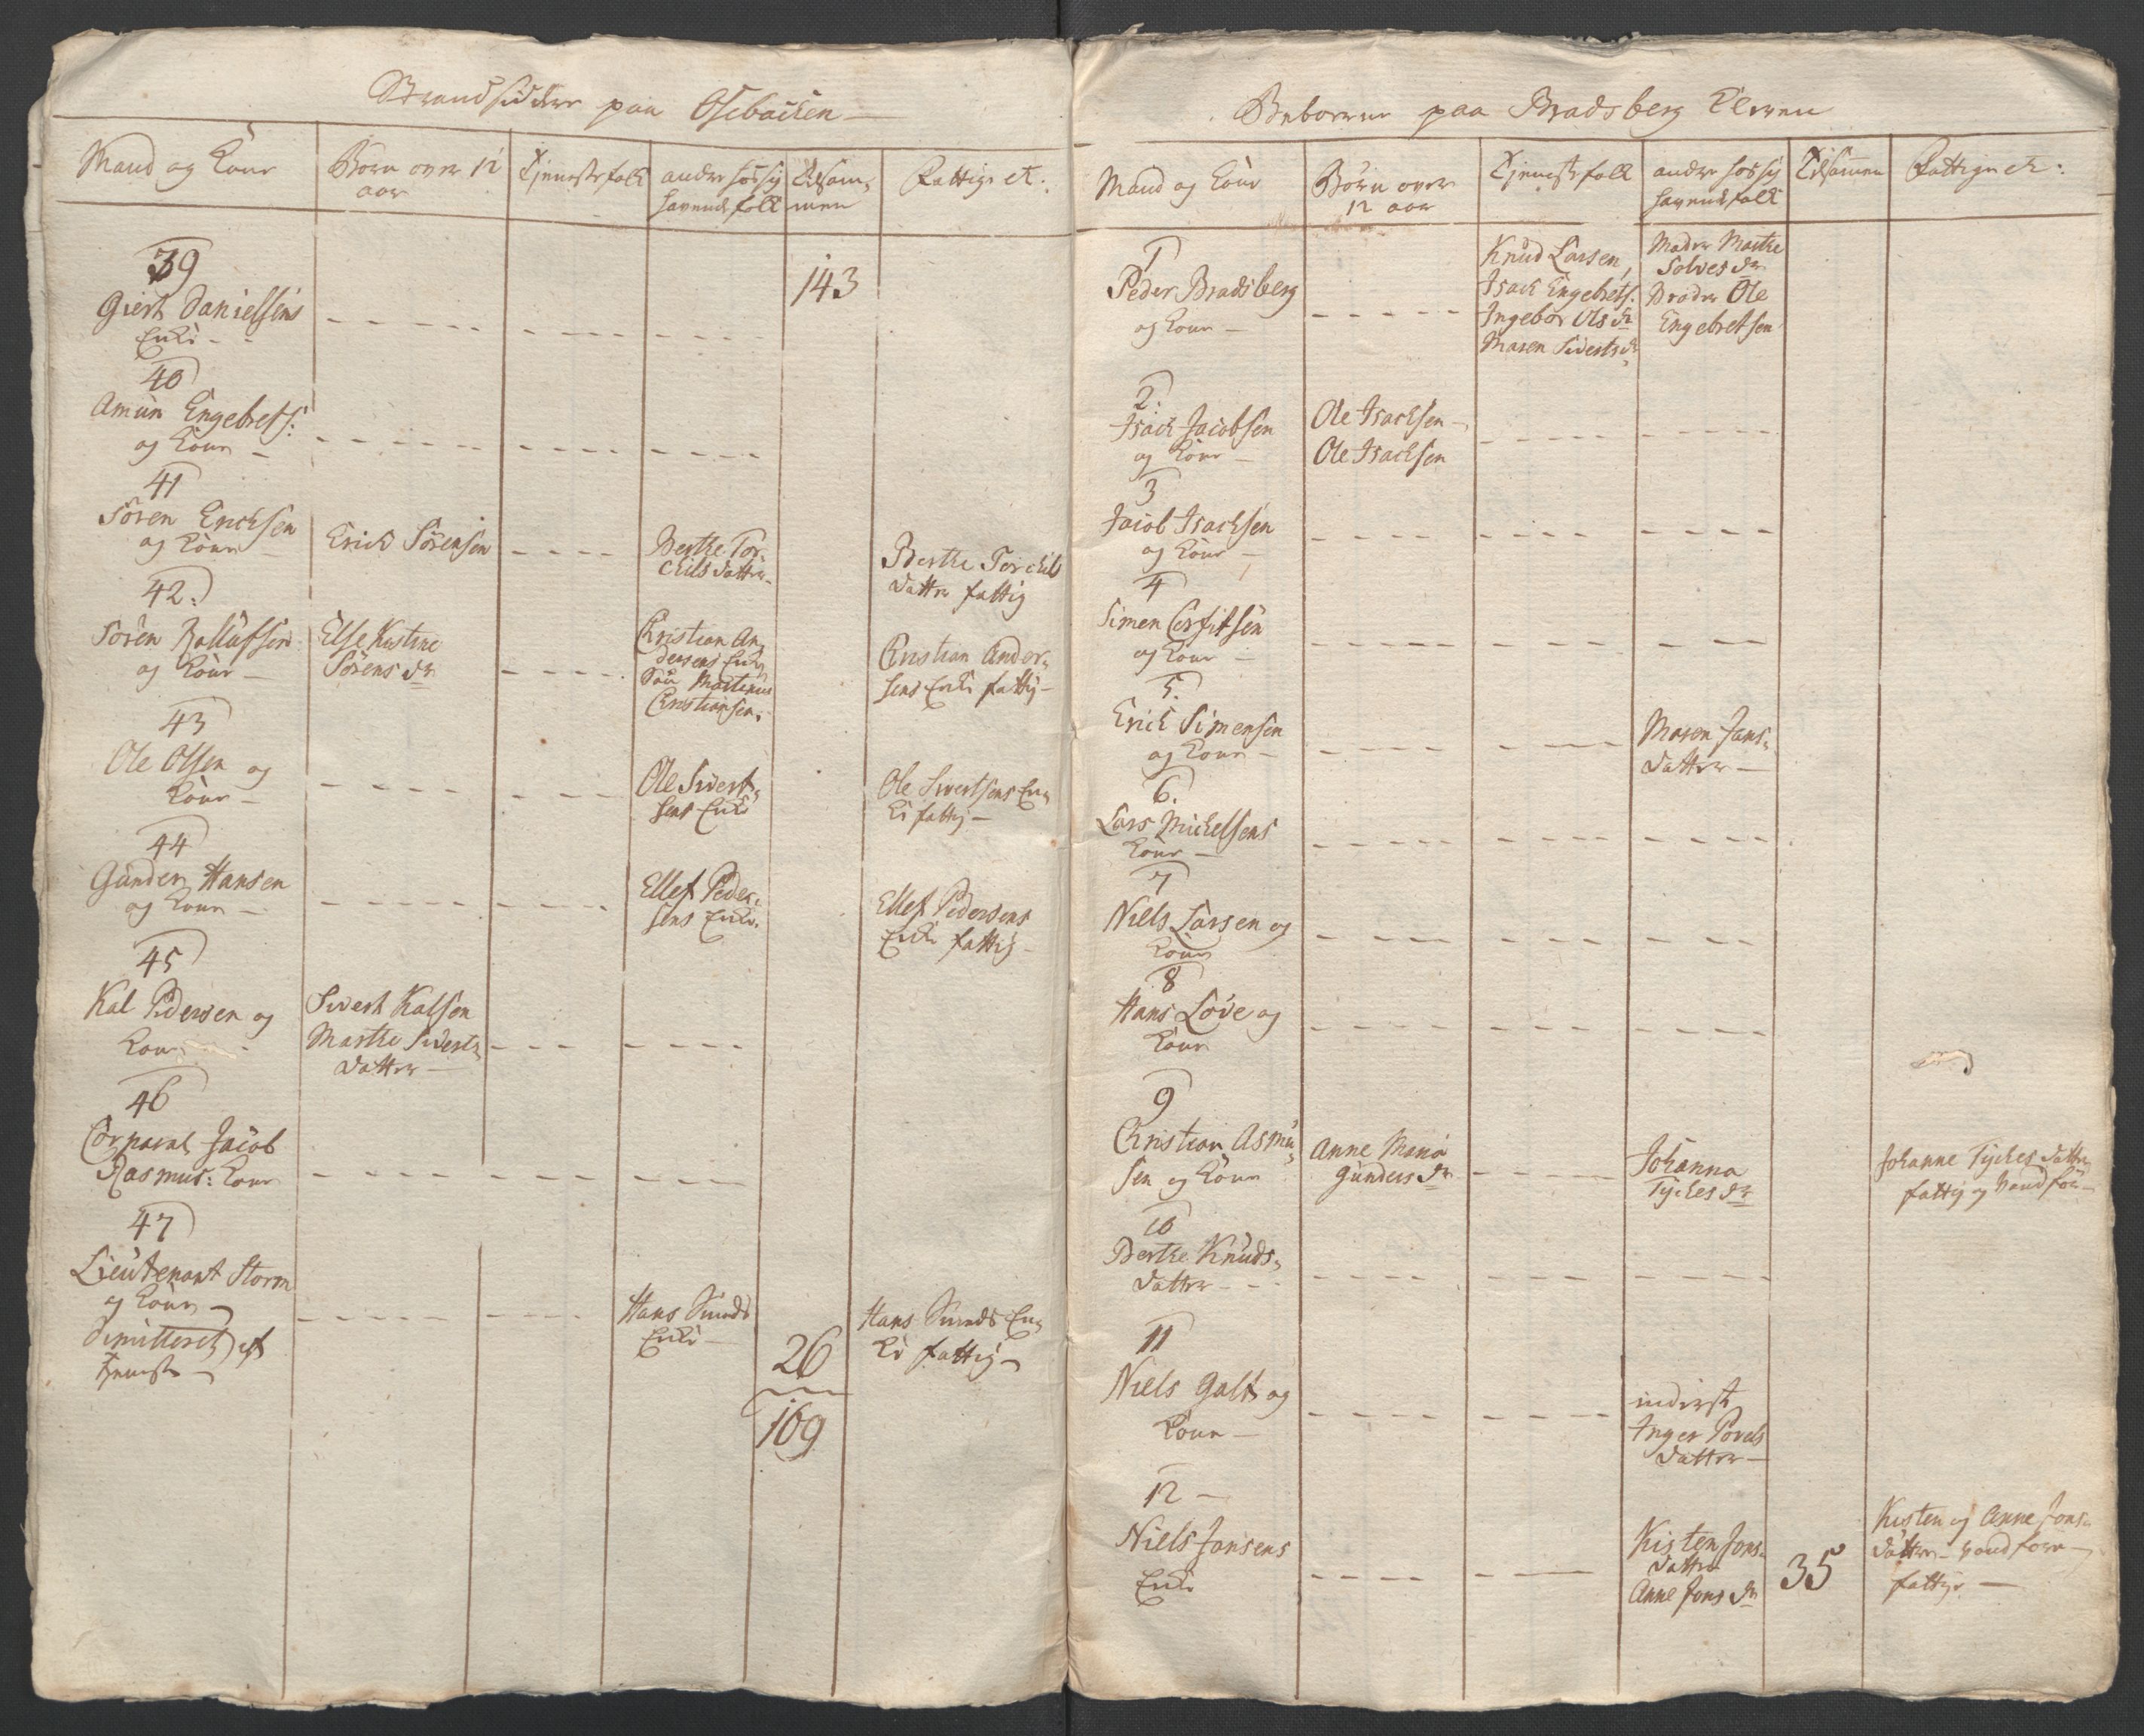 Strandsidder paa Osebacken
Mand og Kone
Børn over 12
aar
Tjenestefolk
andre hos sig
havende folk
Tilsam-
men
Fattige etc:
39
143
Giert Danielsens
Enke
40
Amun Engebrets:
og Kone
41
Søren Ericksen
og Kone
Erick Sørensen
Berthe Tor-
ckils datter
Berthe Torckils
datter fattig
42:
Søren Rollufsen
og Kone
Else Kistine
Sørens dr
Christian An-
dersens Enke
Søn Martinus
Christiansen.
Cristian Ander-
sens Enke fattig
43
Ole Olsen og
Kone
Ole Siverts-
sens Enke
Ole Sivertsens En-
ke fattig
44
Gunder Hansen
og Kone
Ellef Peder-
sens Enke.
Ellef Pedersens
Enke fattig
45
Kal Pedersen og
Kone
Sivert Kalsen
Marthe Siverts
datter
46
Corporal Jacob
Rasmus: Kone
47
Lieutenant Storm
og Kone
Dimitteret af
tieniste
Hans Smeds
Enke
26
Hans Smeds En-
ke fattig
169
Beboerne paa Bradsberg Eleven
Mand og Kone
Børn over
12 aar
Tjenestefolk
andre hos sig
havende folk
Tilsamen
Fattige etc:
1
Peder Bradsberg
og Kone
Knud Larsen,
Isack Engebrets:
Ingebor Ols dr
Maren Siverts dr
Moder Marthe
Solves dr
Broder Ole
Engebretsen
2:
Isack Jacobsen
og Kone
Ole Isachsen
Ole Isachsen
3
Jacob Isachsen
og Kone
4
Simen Corfitsen
og Kone
5.
Erick Simensen
og Kone
Maren Jans-
datter
6.
Lars Mickelsens
Kone
7
Niels Larsen og
Kone
8
Hans Løve og
Kone
9
Christian Asmu-
sen og Kone
Anne Maria
Gunders dr
Johanna
Tyckes dr
Johanne Tyckes datter
fattig og vandfør
10
Berthe Knuds-
datter
11
Niels Galt og
Kone
inderst
Inger Povels
datter
12
Niels Jansens
Enke
Kisten Jons-
datter
Anne Jons dr
35
Kisten og Anne Jons-
døttre vandføre
fattige